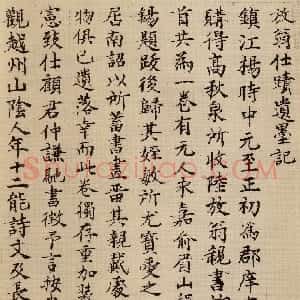 放翁仕蹟遺墨記
鎮江楊時中元至正初為郡庠
購得高秋泉所收陸放翁親書
首共為一卷有元永嘉俞眉山
錫題跋後歸其姪敏所尤寶愛之
居南詔以所蓄書畫畱其親戚處
物俱已遺落幸而此卷獨存重加
憲致仕顧君仲謙馳書徵予言按
觀越州山陰人年十二能詩文及長